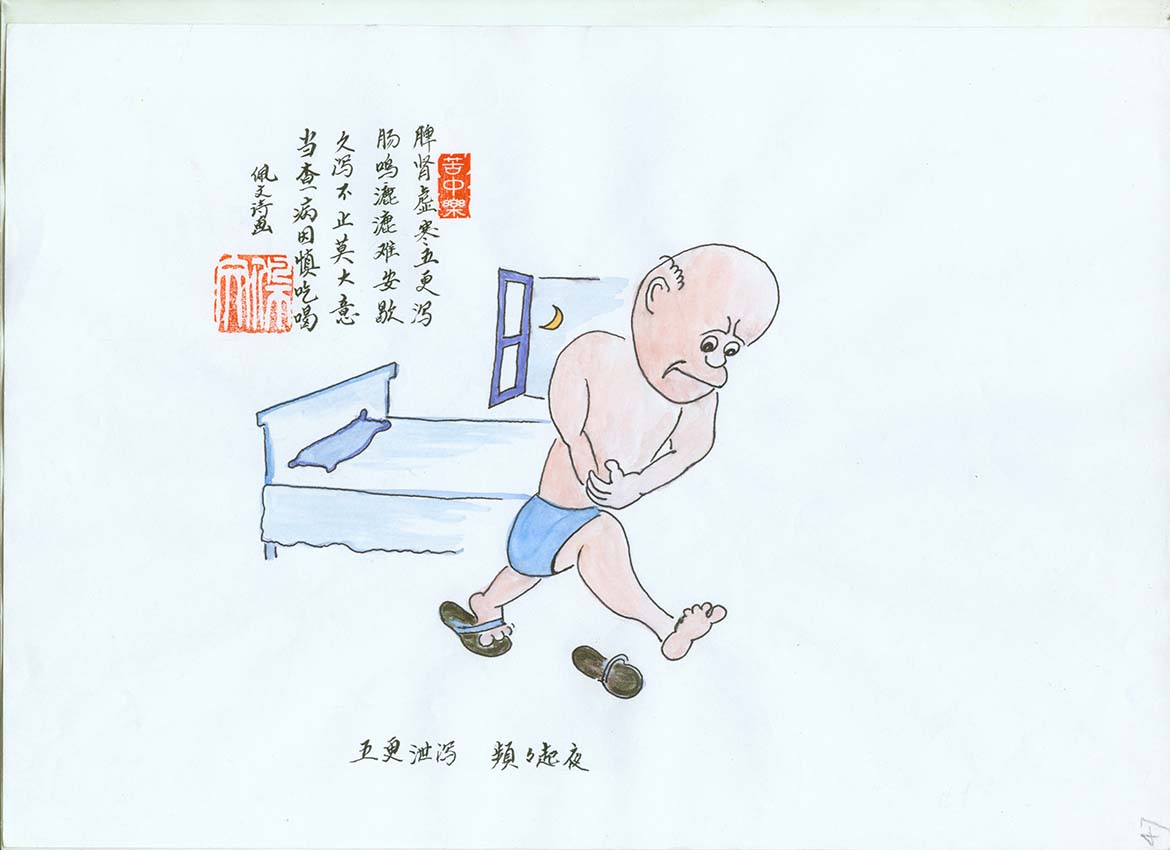 苦中樂
脾肾虚寒五更泻
肠鸣漉漉难安歇
久泻不止莫大意
当查病因慎吃喝
佩文诗画
五更泄泻 頻々起夜
47